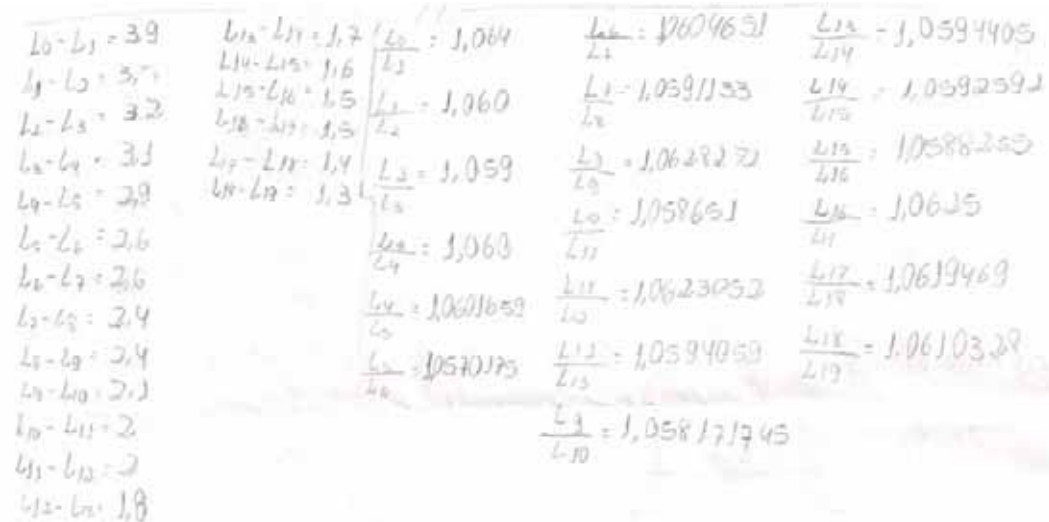 L0-L1 = 39
L1-L2 = 3,
L2-L3 = 3.2
L3-L4 = 3.1
L4-L5 = 2,9
L5-L6 = 2,6
L6-L7 = 2,6
L7-L8 = 2,4
L8-L9 = 2,4
L9-L10 = 2,1
L10-L11 = 2
L11-L12 = 2
L12-L13 = 1,8
L13-L14 = 1,7
L14-L15 = 1,6
L15-L16 = 1,5
L16-L17 = 1,5
L17-L18 = 1,4
L18-L19 = 1,3
L0/L1 = 1,064
L1/L2 = 1,060
L2/L3 = 1,059
L3/L4 = 1,063
L4/L5 = 1,0601659
L5/L6 = 1,0570175
L6/L7 = 1,0604651
L7/L8 = 1,0591133
L8/L9 = 1,0628272
L10/L11 = 1,058651
L11/L12 = 1,0623052
L12/L13 = 1,0594059
L9/L10 = 1,058171745
L13/L14 = 1,0594405
L14/L15 = 1,0592592
L15/L16 = 1,0588235
L16/L17 = 1,0625
L17/L18 = 1,0619469
L18/L19 = 1.0610328